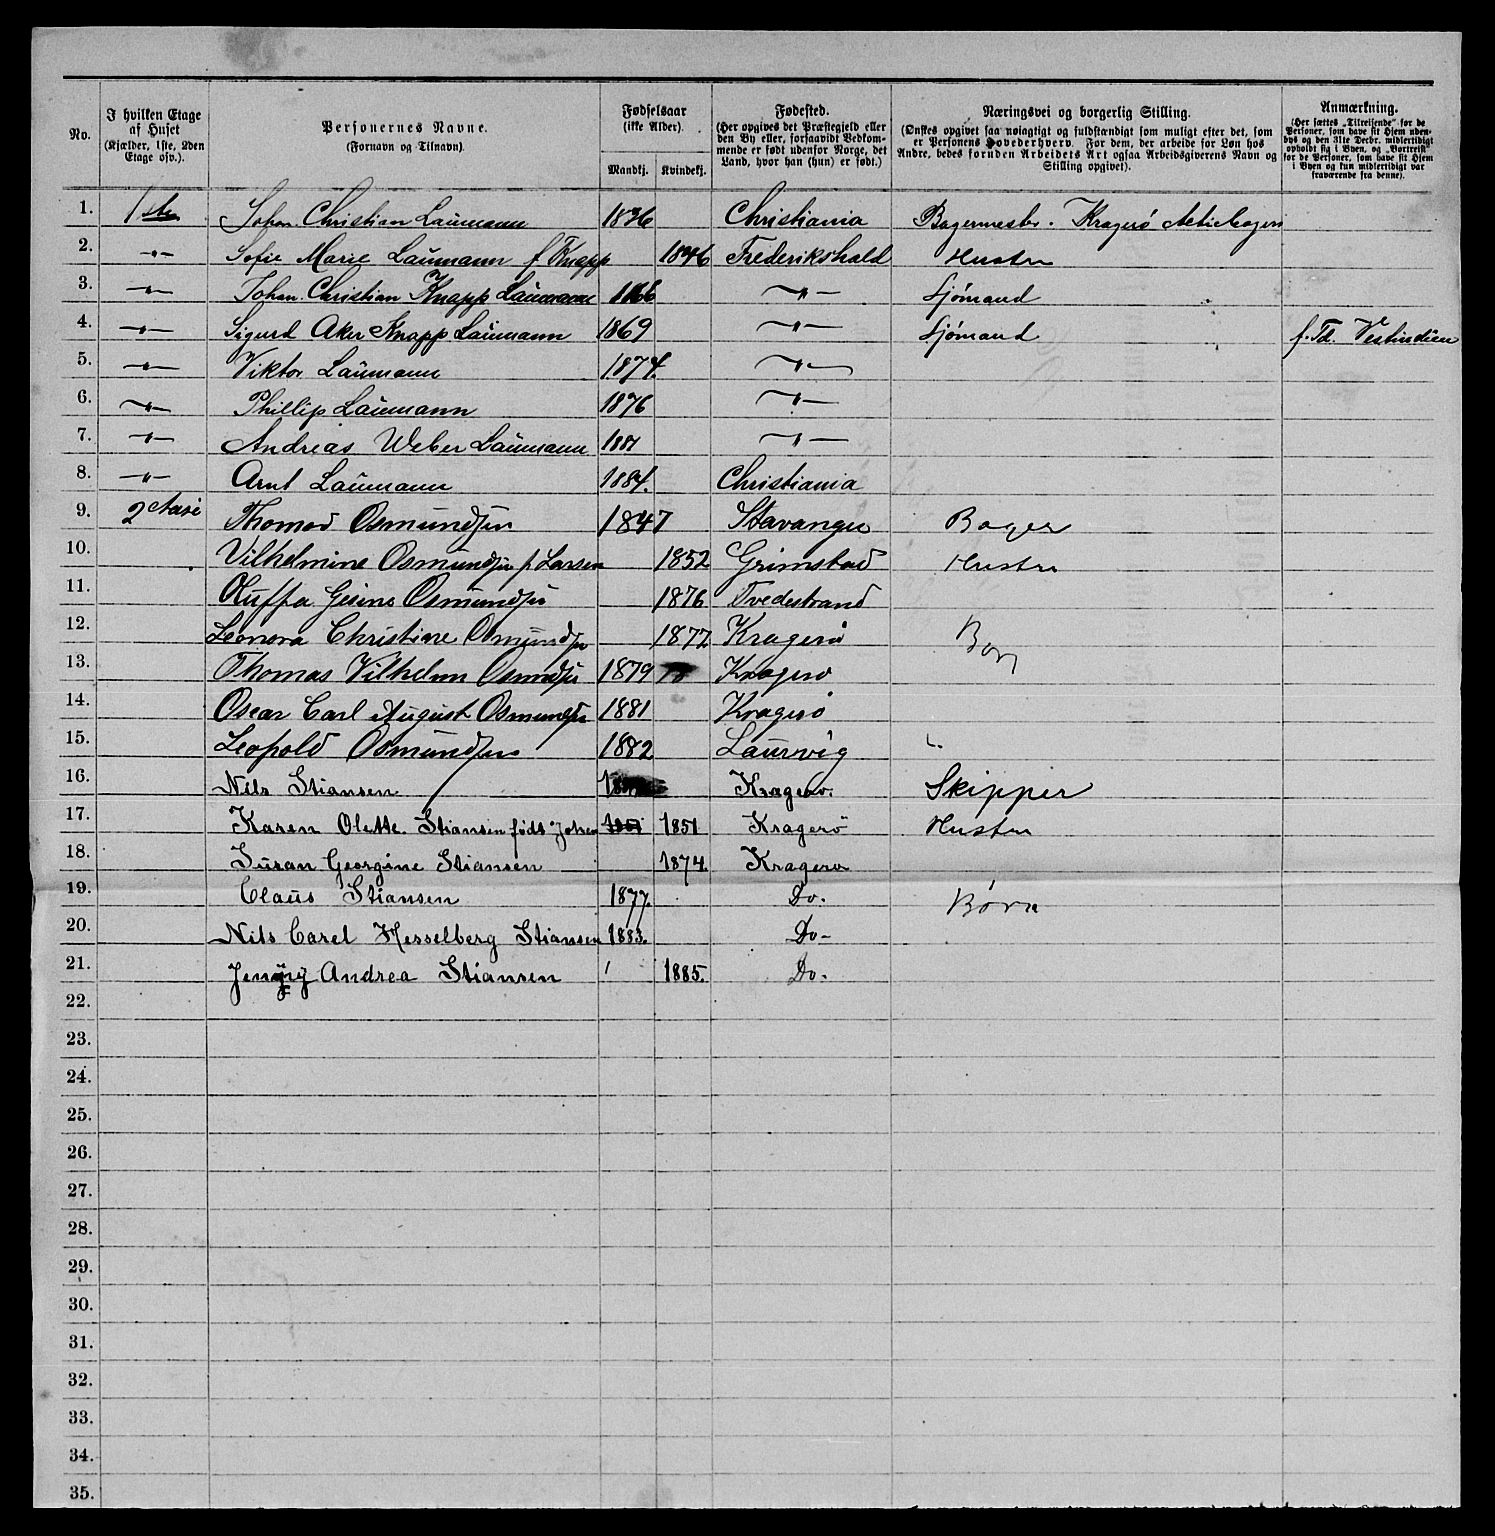 No.
I hvilken Etage af Huset (Kjælder, 1ste, 2den Etage osv.).
Personernes Navne. (Fornavn og Tilnavn).
Fødselsaar (ikke Alder). Mandkj. Kvindekj.
Fødested. (Her opgives det Præstegjeld eller den By eller, forsaavidt Vedkommende er født udenfor Norge, det Land, hvor han (hun) er født.)
Næringsvei og borgerlig Stilling. (Ønskes opgivet saa nøiagtigt og fuldstændigt som muligt efter det, som er Personens Hovederhverv. For dem, der arbeide for Løn hos Andre, bedes foruden Arbeidets Art ogsaa Arbeidsgiverens Navn og Stilling opgivet).
Anmærkning. (Her sættes „Tilreisende“ for de Personer, som have sit Hjem udenbys og den 31te Decbr. midlertidigt opholdt sig i Byen, og „Bortreist“ for de Personer, som have sit Hjem i Byen og kun midlertidigt var fraværende fra denne).
1. 1ste Johan Christian Laumann 1836 Christiania Bagermester. Kragerø Actiebageri
2. -"- Sofie Marie Laumann f. Knapp 1846 Frederikshald Hustru
3. -"- Johan Christian Knapp Laumann 1866 -"- Sjømand
4. -"- Sigurd Aker Knapp Laumann 1869 -"- Sjømand f. Td. Vestindien
5. -"- Viktor Laumann 1874. -"-
6. -"- Phillip Laumann 1876 -"-
7. -"- Andreas Weber Laumann 1881 -"-
8. -"- Arnt Laumann 1884. Christiania
9. 2 Thomas Osmundsen 1847 Stavanger Bager
10. Vilhelmine Osmundsen f. Larsen 1852 Grimstad Hustru
11. Osmundsen 1876 Tvedestrand
12. Leonora Christine Osmundsen 1877 Kragerø Børn
13. Thomas Vilhelm Osmundsen 1879 Kragerø
14. Oscar Carl August Osmundsen 1881 Kragerø
15. Leopold Osmundsen 1882 Laurvig "
16. Nils Stiansen Kragerø. Skipper
17. Karen Olette Stiansen født 1851 Kragerø Hustru
18. Susan Georgine Stiansen 1874. Kragerø
19. Claus Stiansen 1877. Do. Børn
20. Nils Carel Hesselberg Stiansen 1883. Do-
21. Jenny Andrea Stiansen 1885. Do.
22.
23.
24.
25.
26.
27.
28.
29.
30.
31.
32.
33.
34.
35.